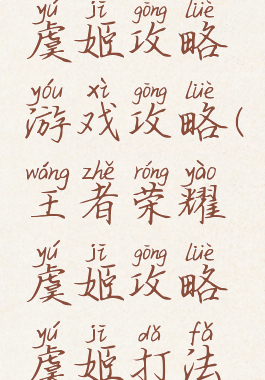 yú jī gōng lüè
虞姬攻略
yóu xì gōng lüè
游戏攻略(
wáng zhě róng yào
王者荣耀
yú jī gōng lüè
虞姬攻略
yú jī dǎ fǎ
虞姬打法